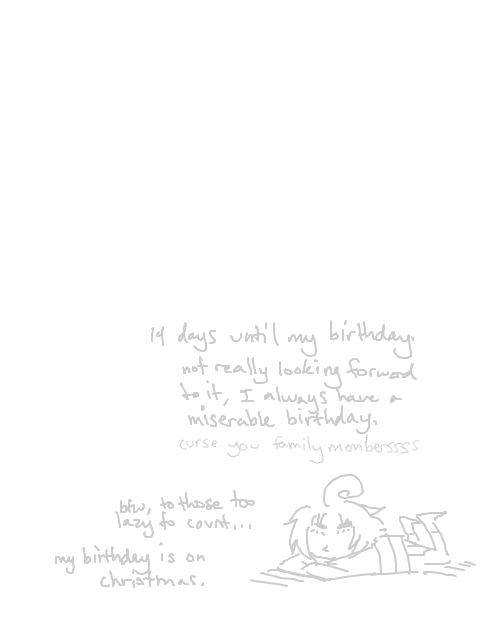 14 days until my birthday.
not really looking forward
to it, I always have a
miserable birthday.
curse you family memberssss
btw, to those too
lazy to count...
my birthday is on
christmas.